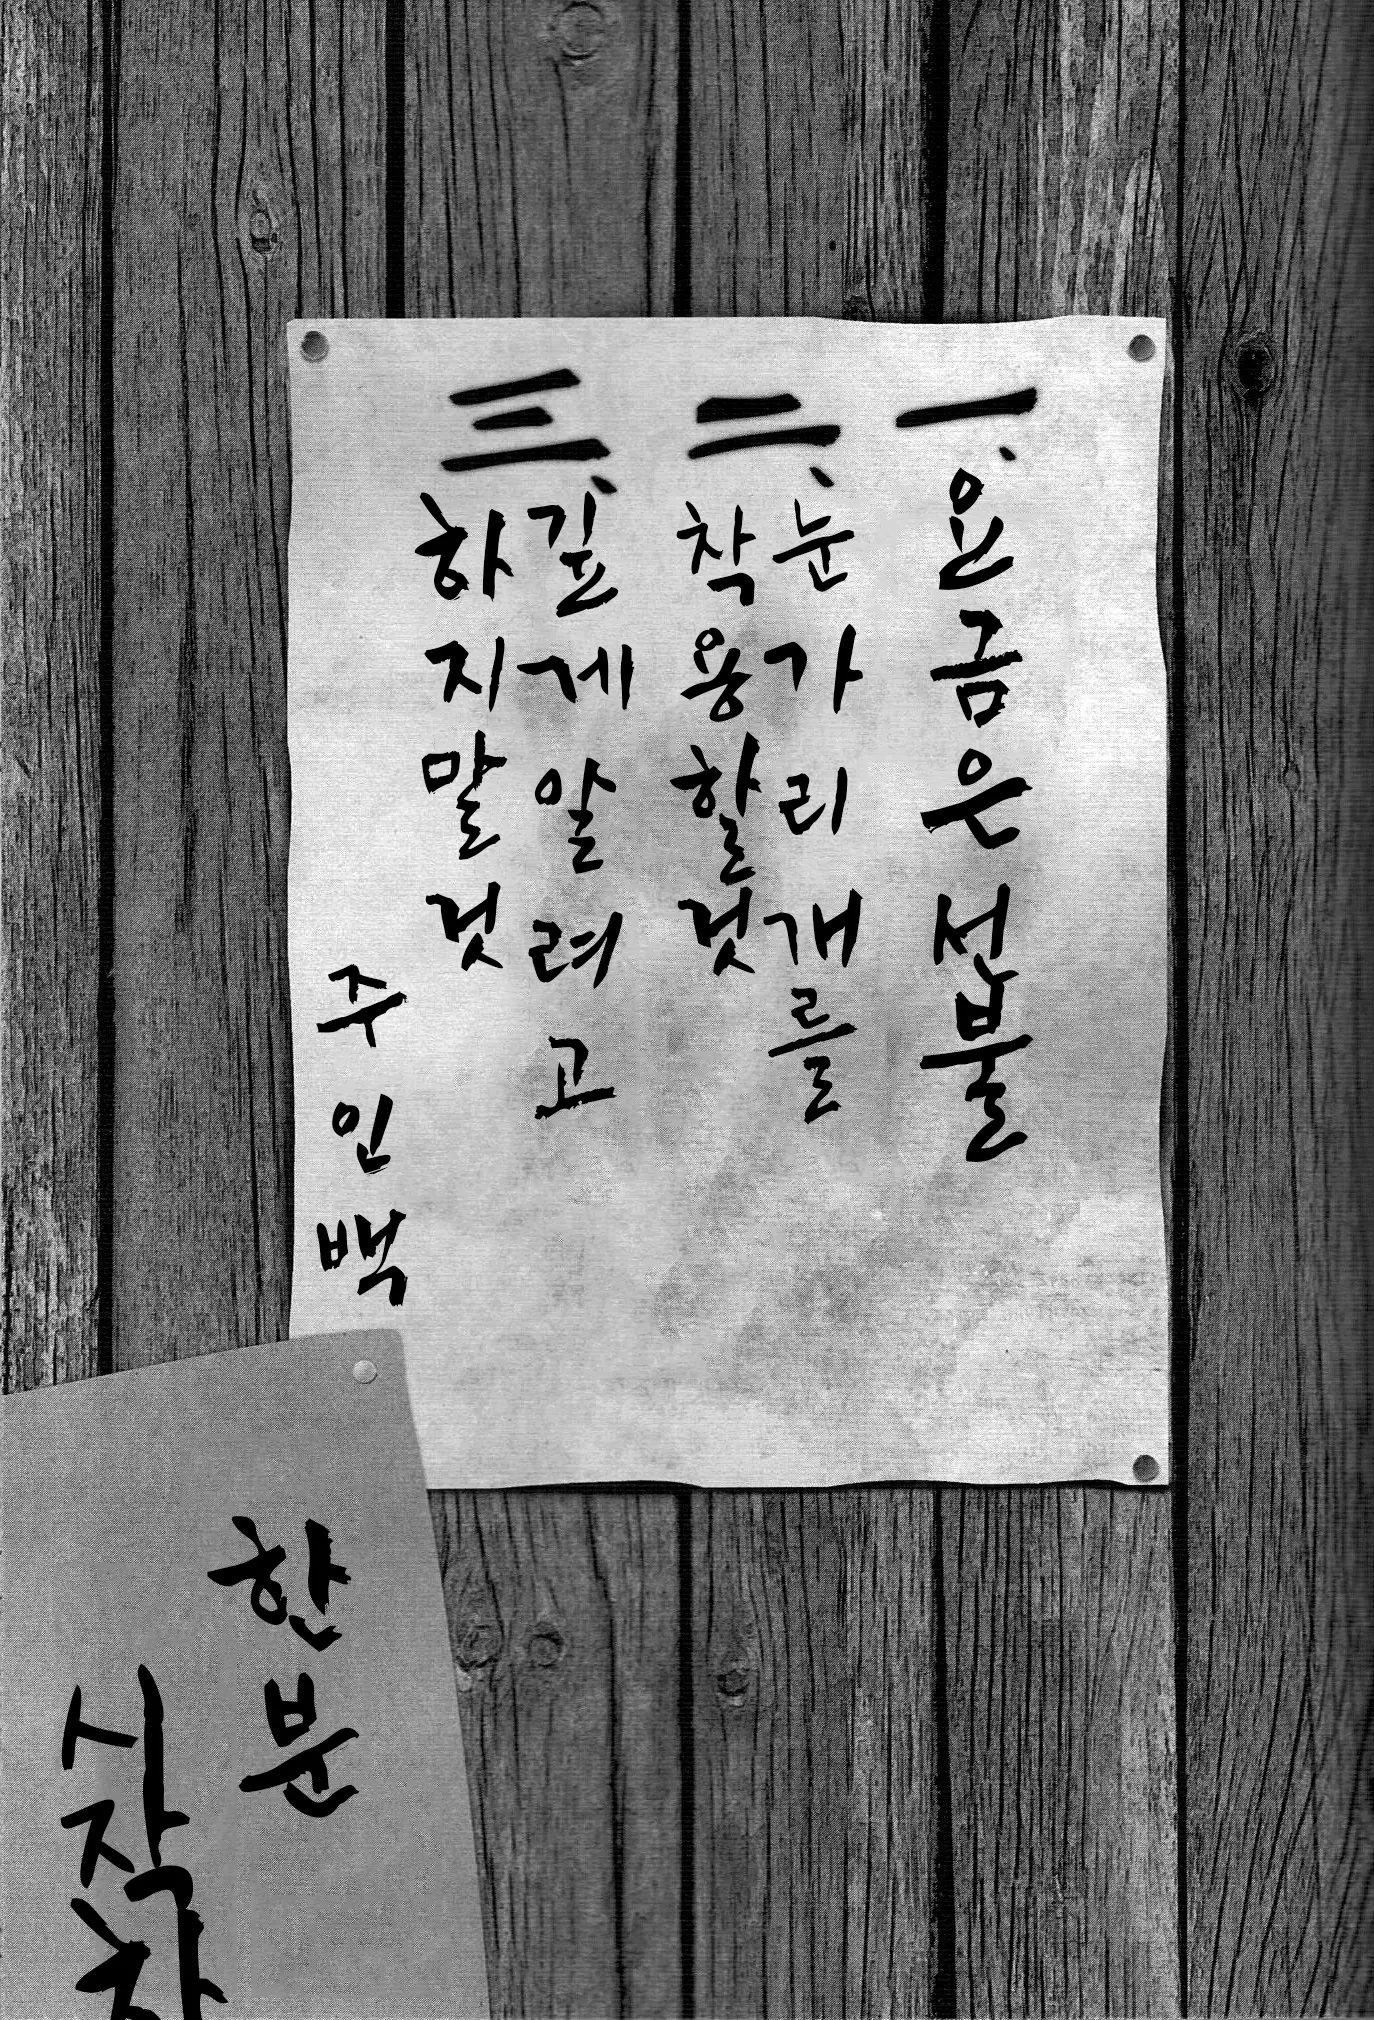 一. 요금은 선불
二. 눈가리개를
착용할 것
三. 깊게 알려고
하지 말 것
주인백
한 분
시작하